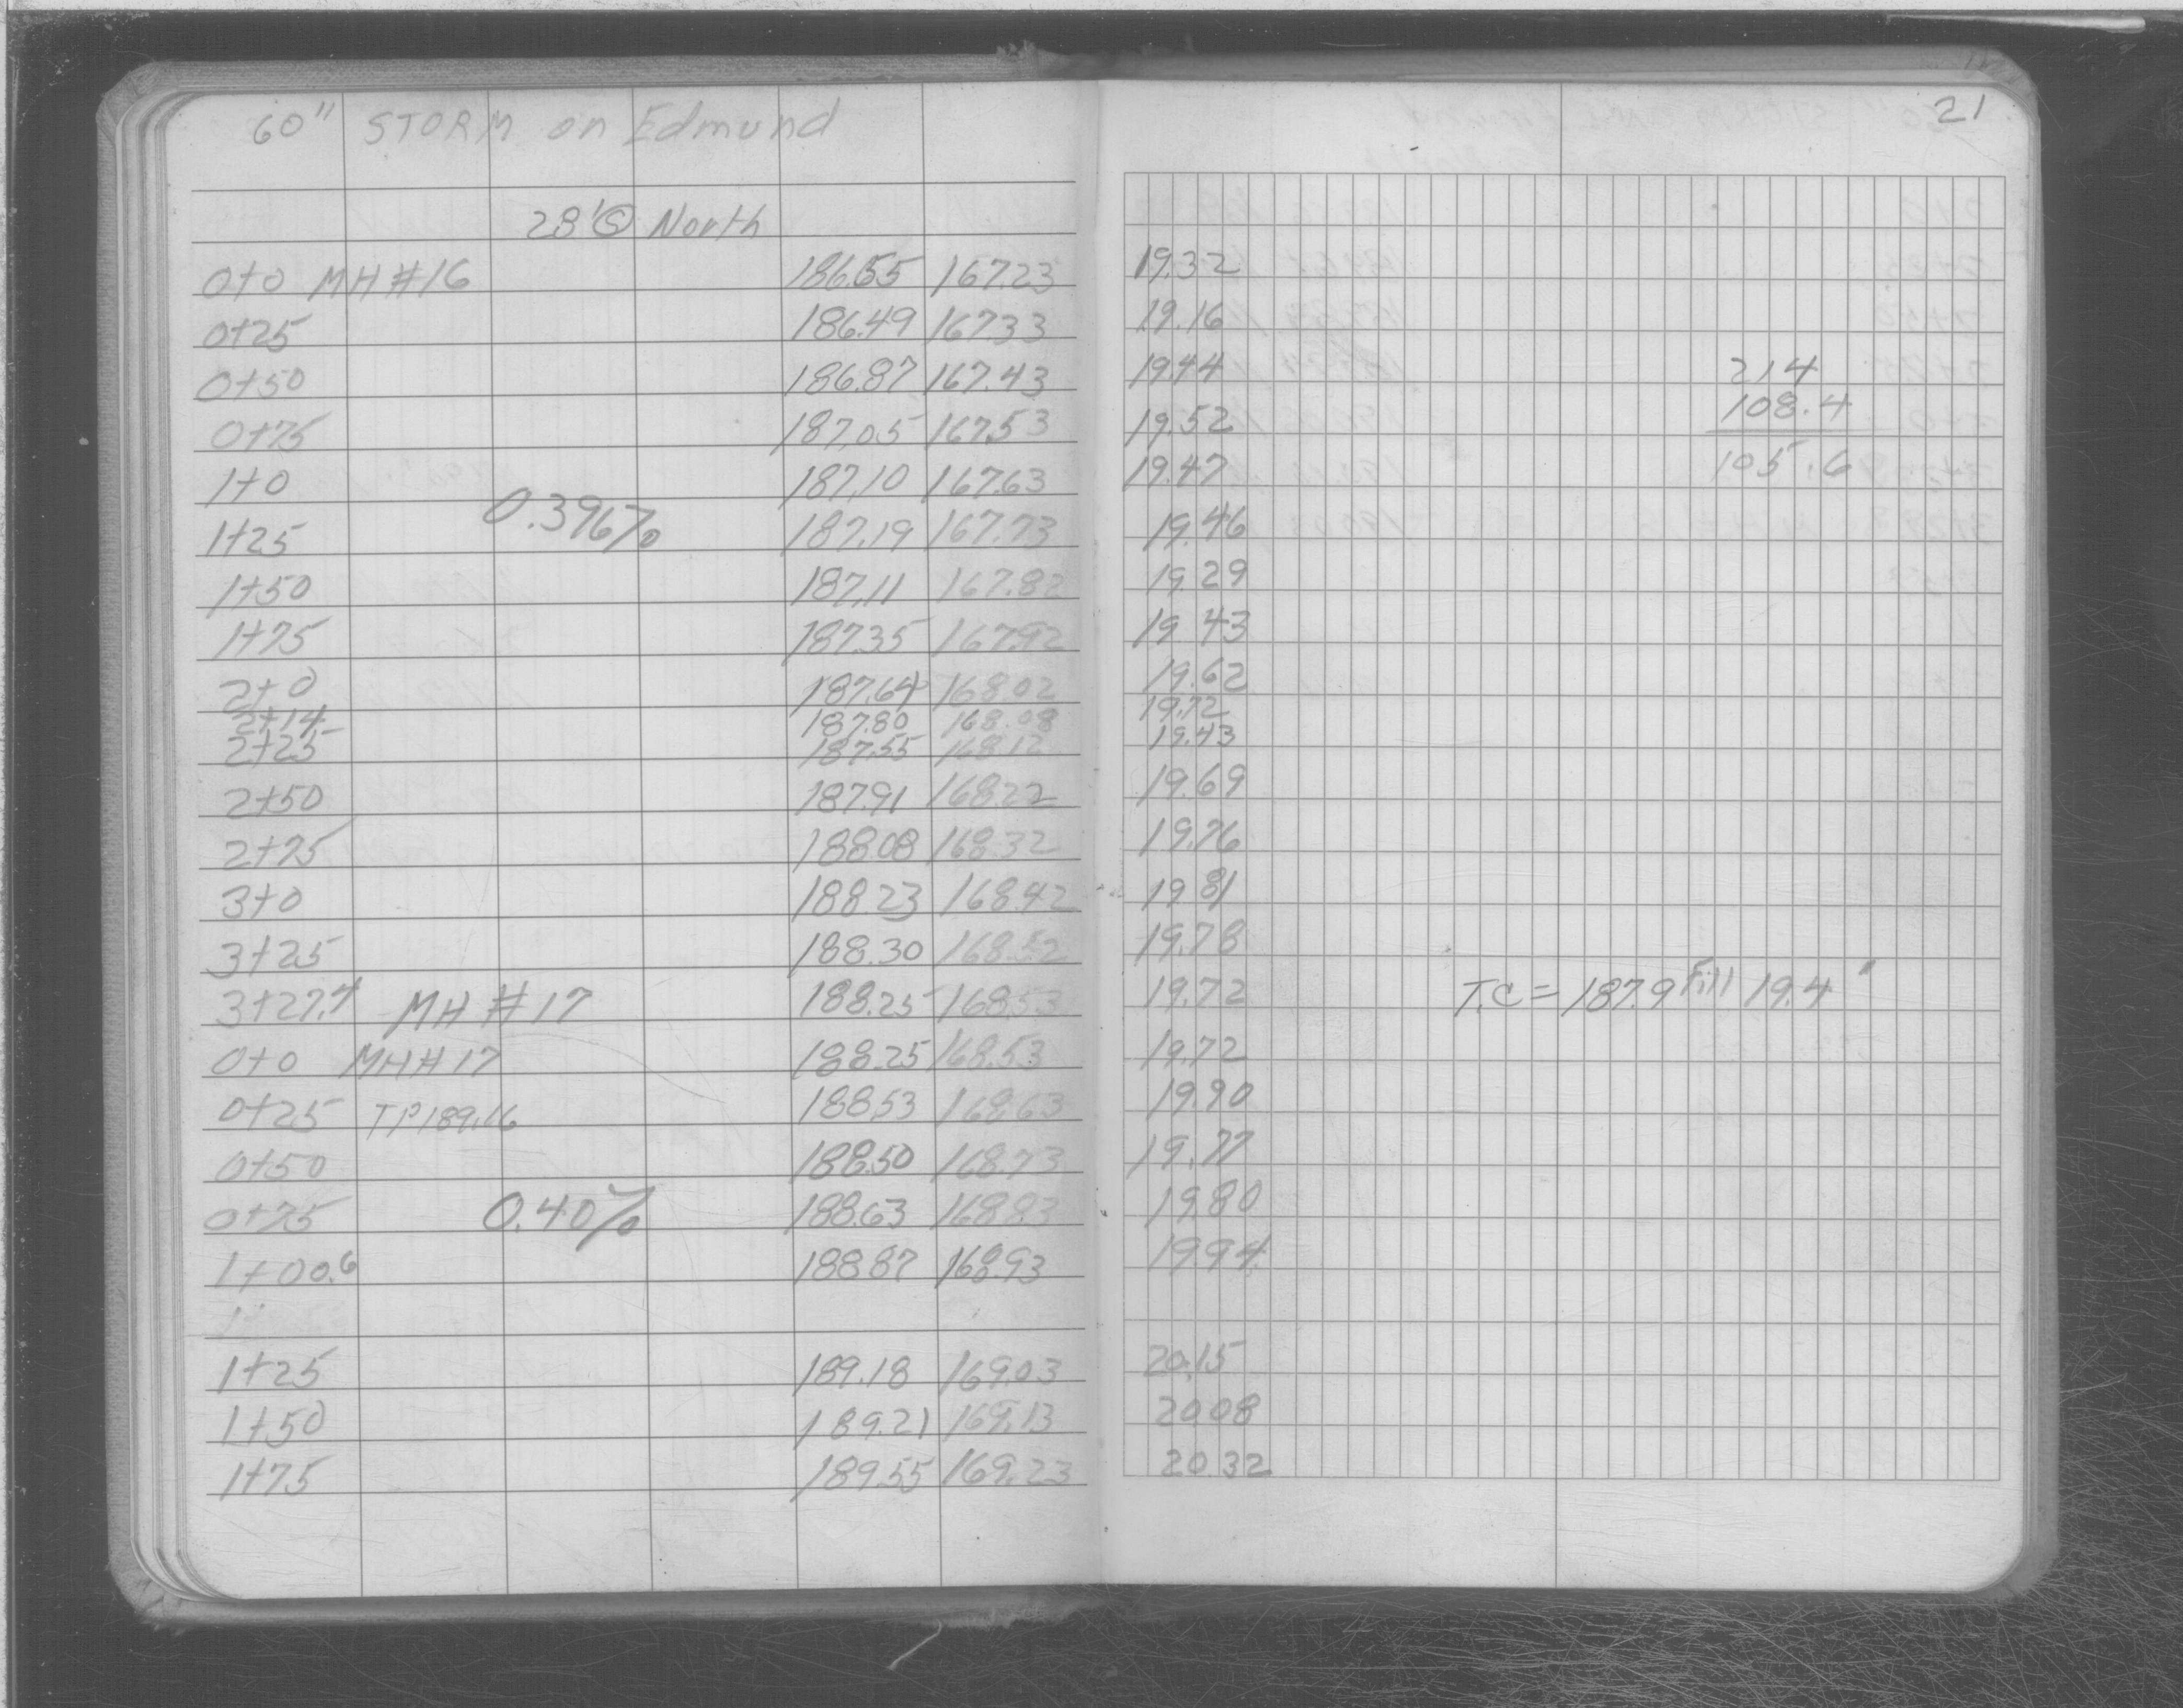 21
60" STORM on Edmund
28' Ⓢ North
0+0 MH#16 186.55 167.23 19.32
0+25 186.49 167.33 19.16
0+50 186.87 167.43 19.44
214
0+75 187.05 167.53 19.52
108.4
1+0 187.10 167.63 19.47
105.6
0.396%
1+25 187.19 167.73 19.46
1+50 187.11 167.82 19.29
1+75 187.35 167.92 19.43
2+0 187.64 168.02 19.62
2+14 187.80 168.08 19.72
2+25 187.55 168.12 19.43
2+50 187.91 168.22 19.69
2+75 188.08 168.32 19.76
3+0 188.23 168.42 19.81
3+25 188.30 168.52 19.78
3+27.4 MH #17 188.25 168.53 19.72 T.C = 187.9 Fill 19.4'
0+0 MH#17 188.25 168.53 19.72
0+25 TP 189.16 188.53 168.63 19.90
0+50 188.50 168.73 19.77
0+75 0.40% 188.63 168.83 19.80
1+00.6 188.87 168.93 19.94
1+25 189.18 169.03 20.15
1+50 189.21 169.13 20.08
1+75 189.55 169.23 20.32